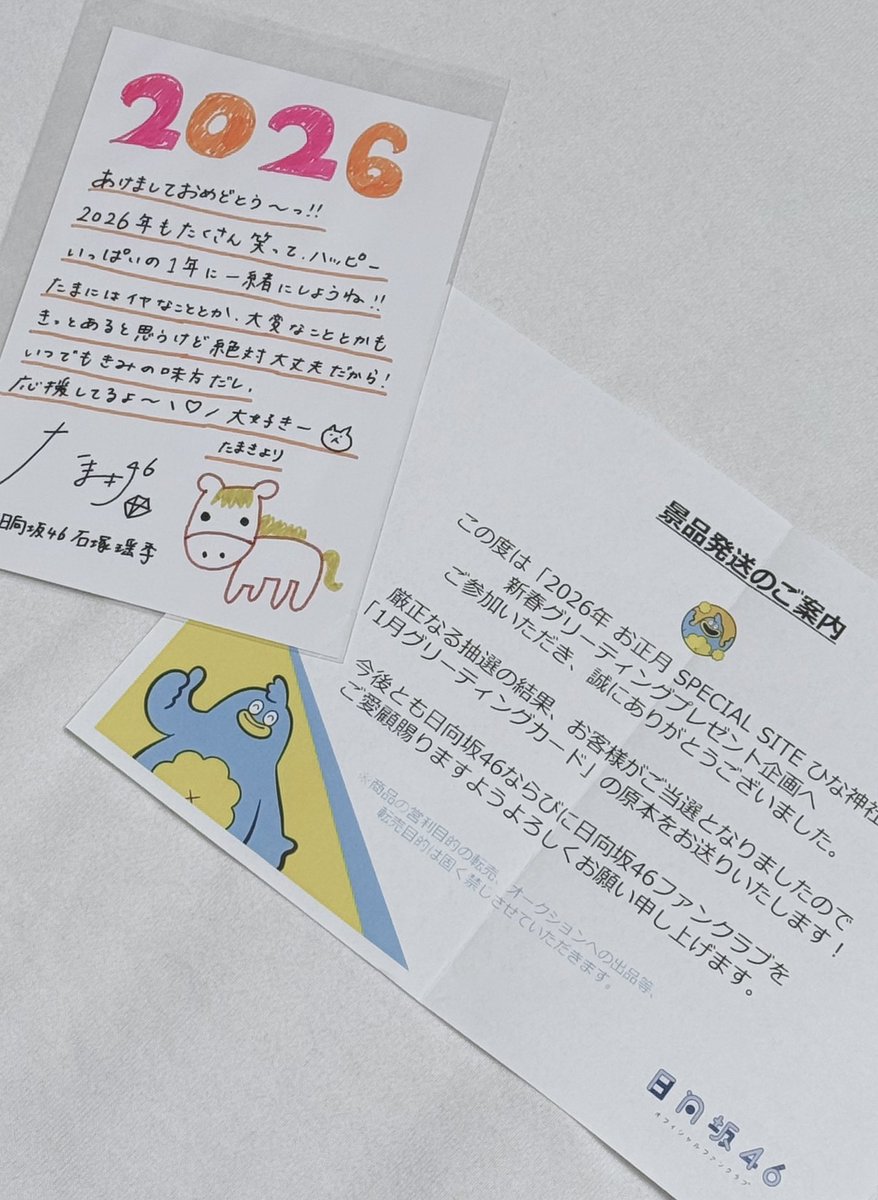 2026
あけましておめでとう〜っ!!
2026年もたくさん笑って、ハッピー
いっぱいの1年に一緒にしようね!!
たまにはイヤなこととか、大変なこととかも
きっとあると思うけど絶対大丈夫だから!
いつでもきみの味方だし、
応援してるよ〜 \♡/ 大好きー
たまきより
たまき46
日向坂46 石塚瑶季
景品発送のご案内
この度は「2026年 お正月 SPECIAL SITE ひな神社
新春グリーティングプレゼント企画へ
ご参加いただき、誠にありがとうございました。
厳正なる抽選の結果、お客様がご当選となりましたので
「1月グリーティングカード」の原本をお送りいたします!
今後とも日向坂46ならびに日向坂46ファンクラブを
ご愛顧賜りますようよろしくお願い申し上げます。
※商品の営利目的の転売、オークションへの出品等、
転売目的は固く禁じさせていただきます。
日向坂46
オフィシャルファンクラブ